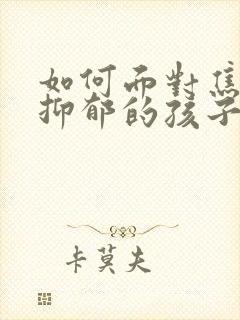 如何而對焦
抑郁的孩子
卡莫夫